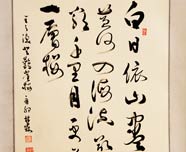 白日依山盡
黄河入海流欲
窮千里目更上
一層樓
王之渙登鸛雀樓